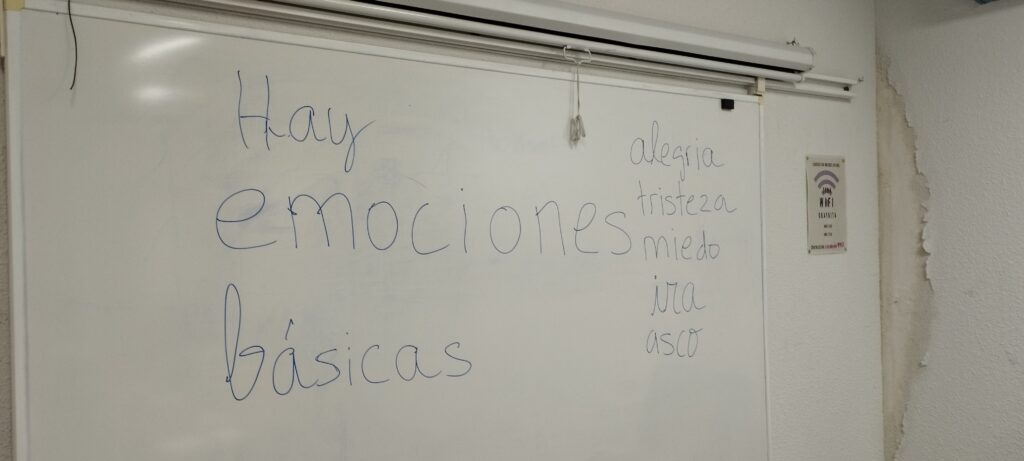 Hay
emociones
básicas
alegria
tristeza
miedo
ira
asco
WIFI
GRATUITA